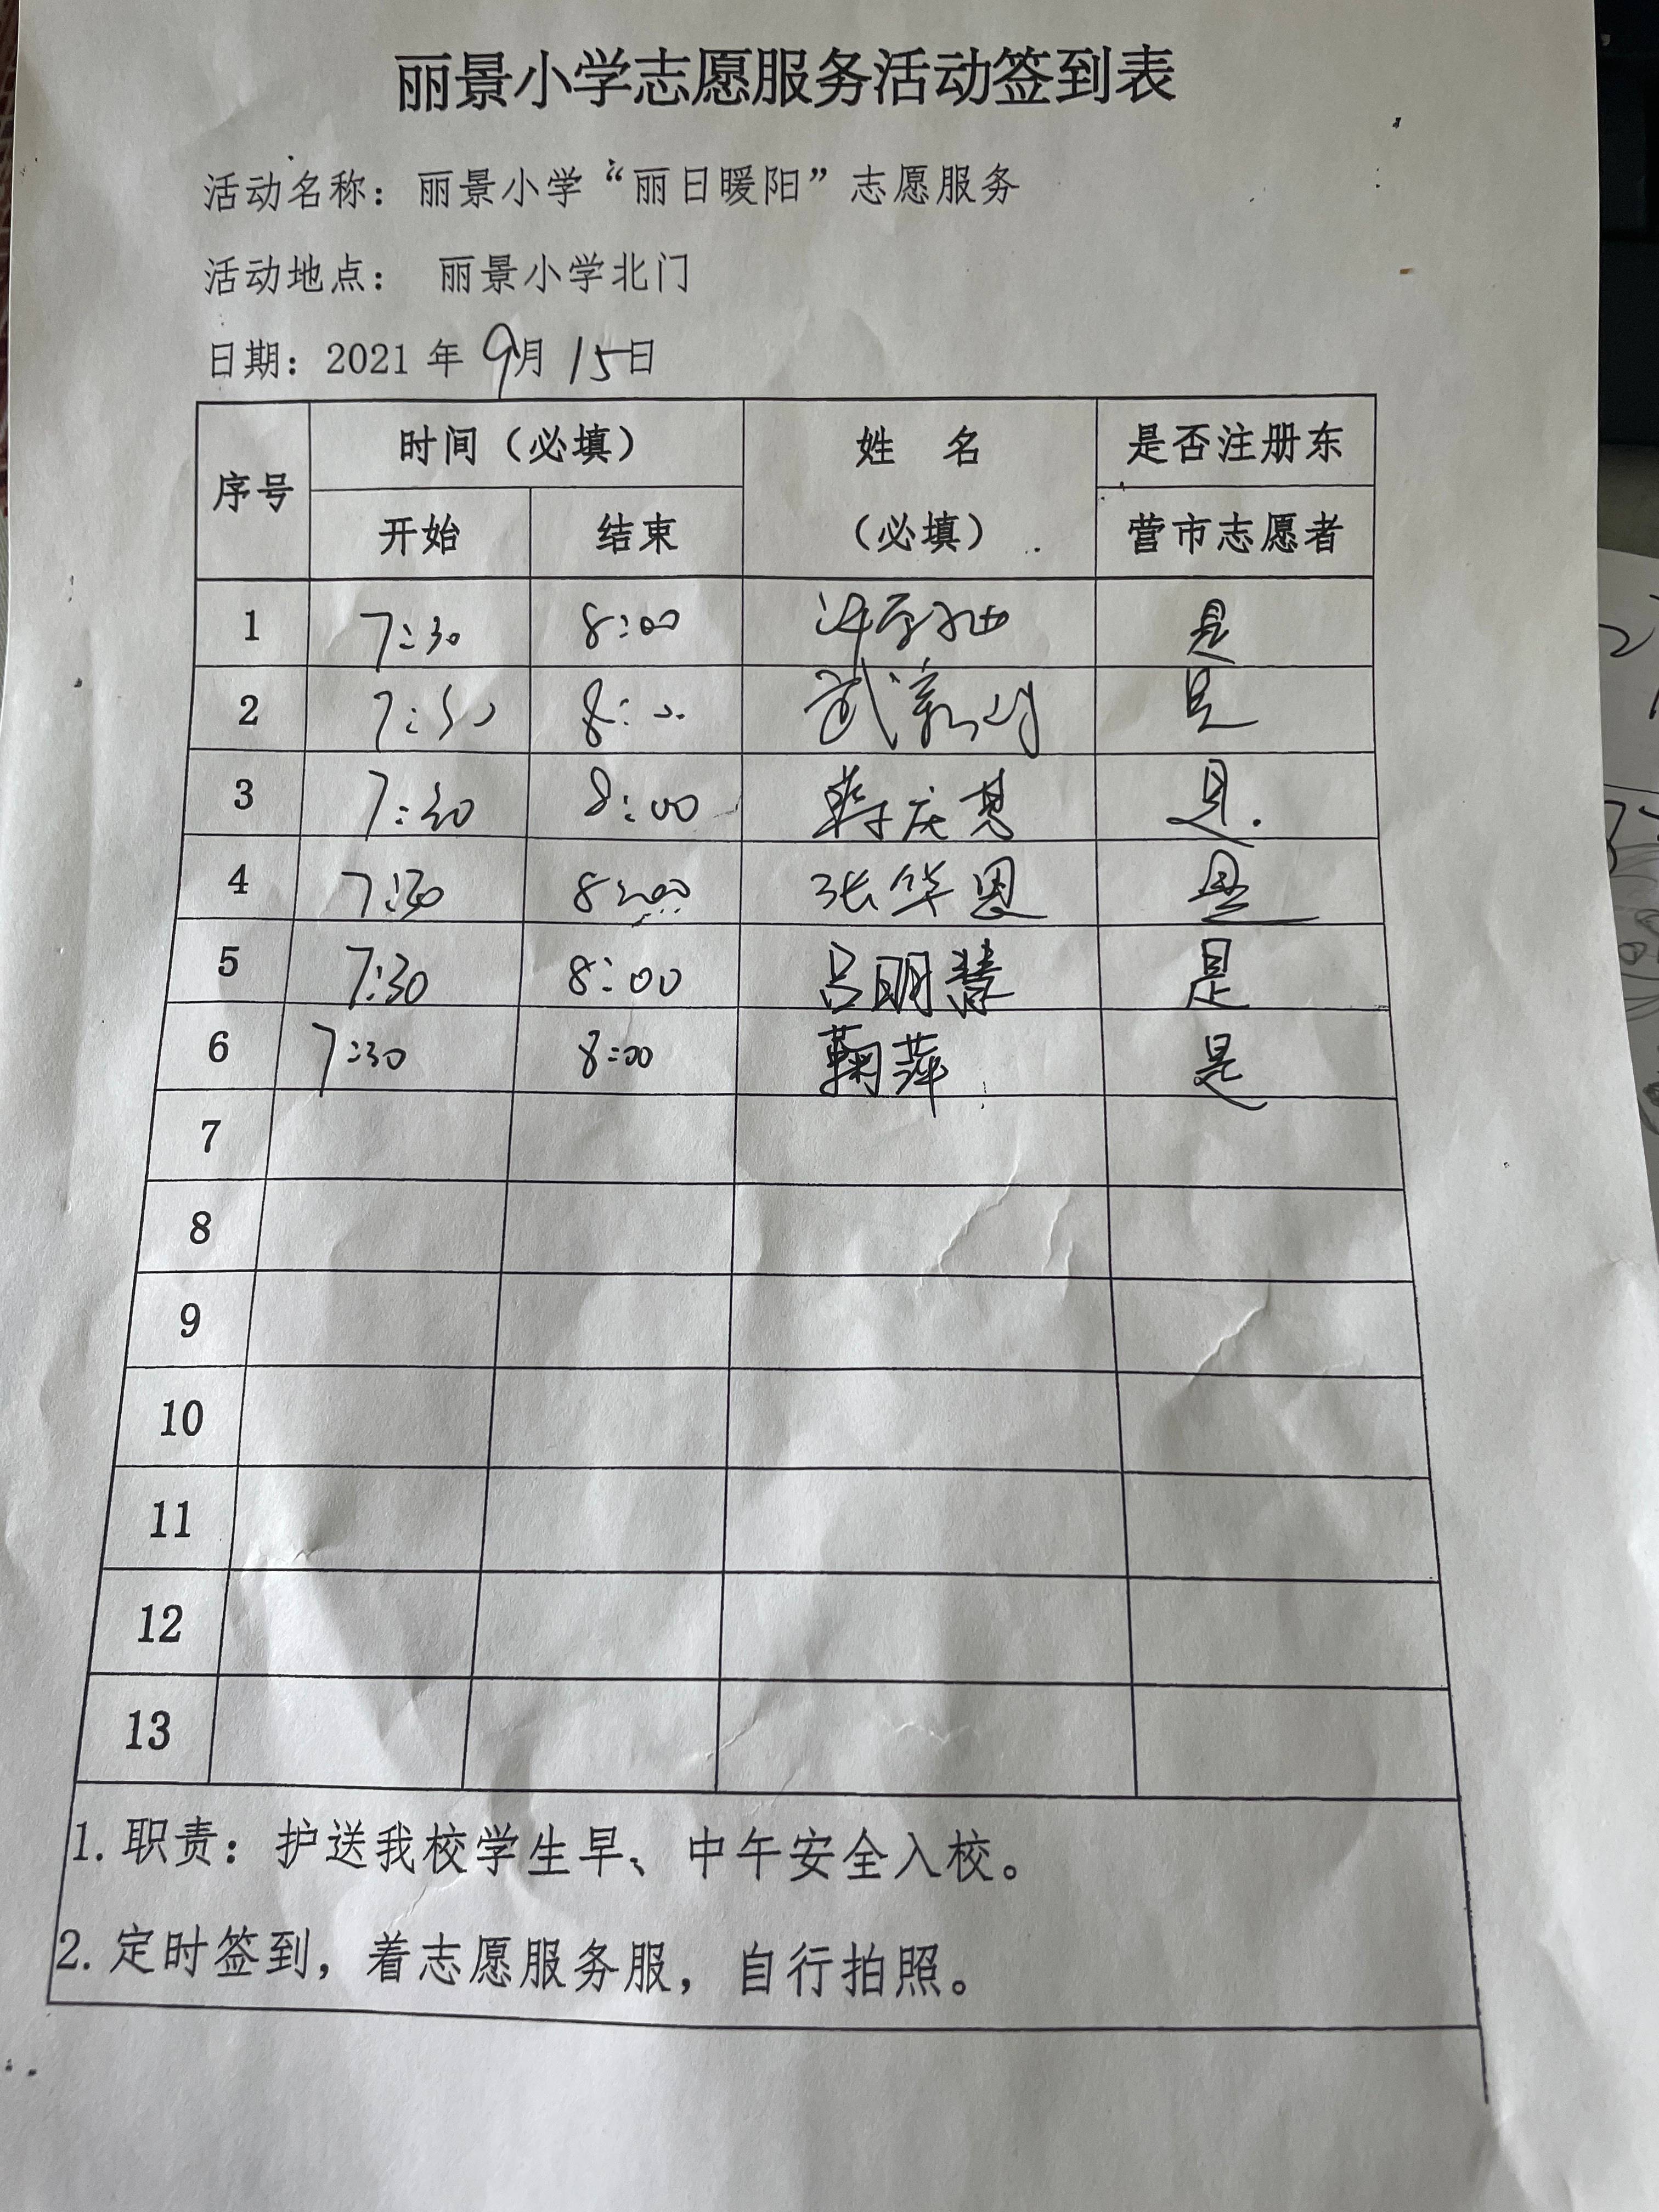 丽景小学志愿服务活动签到表
活动名称：丽景小学“丽日暖阳”志愿服务
活动地点： 丽景小学北门
日期：2021 年 9月 15日
序号 时间（必填） 姓 名 是否注册东
开始 结束 （必填） 营市志愿者
1 7:30 8:00 是
2 7:30 8:00 武 是
3 7:30 8:00 韩庆 是.
4 7:30 8:00 张华恩 是
5 7:30 8:00 吕明慧 是
6 7:30 8:00 鞠萍 是
7
8
9
10
11
12
13
1. 职责：护送我校学生早、中午安全入校。
2. 定时签到，着志愿服务服，自行拍照。